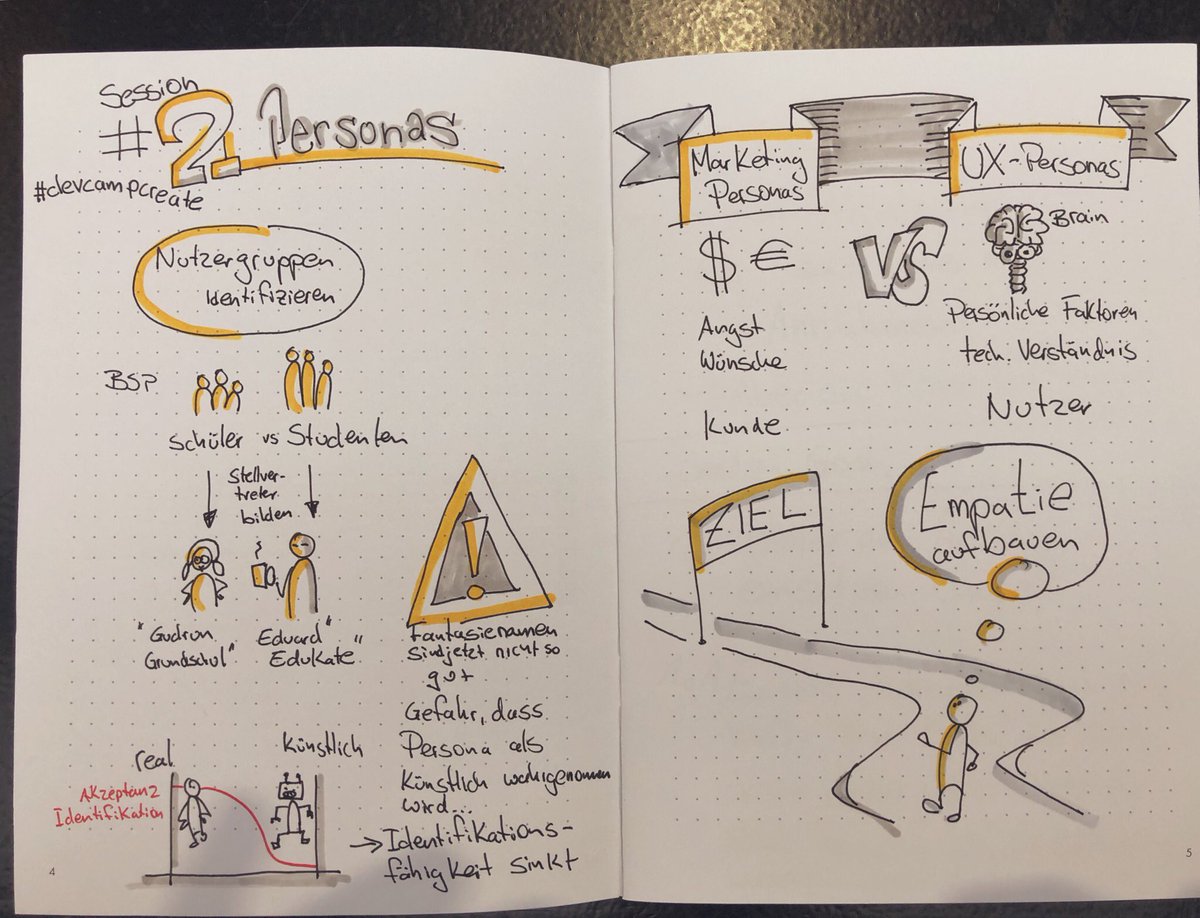 Session
# 2. Personas
#devcampcreate
Nutzergruppen
identifizieren
BSP
Schüler vs Studenten
Stellver-
treter
bilden
"Gudron
Grundschul"
Eduard"
Edukate "
Fantasienamen
sind jetzt nicht so
gut
Gefahr, dass
Persona als
Künstlich wahrgenommen
wird...
→ Identifikations-
fähigkeit sinkt
real
Künstlich
Akzeptanz
Identifikation
4
Marketing
Personas
VS
UX-Personas
$ €
Brain
Angst
Wünsche
Kunde
Persönliche Faktoren
tech. Verständnis
Nutzer
ZIEL
Empatie
aufbauen
5